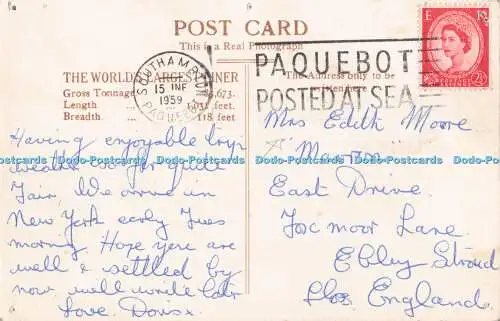 POST CARD
This is a Real Photograph
E R
POSTAGE REVENUE
2½D
SOUTHAMPTON
15 JNE
1959
PAQUEBOT
PAQUEBOT
POSTED AT SEA
THE WORLD'S LARGEST LINER
Gross Tonnage 673
Length ... 1,031 feet.
Breadth ... 118 feet
The Address only to be
written here
Having enjoyable trip
weather so far quite
fair, We arrive in
New York early Tues
morning Hope you are
well & settled by
now will write later
Love. Doris x
Mrs Edith Moore
East Drive.
Foxmoor Lane.
Ebley Stroud
Glos England.
Postcards Postcards Postcards Postcards Postcards Postcards